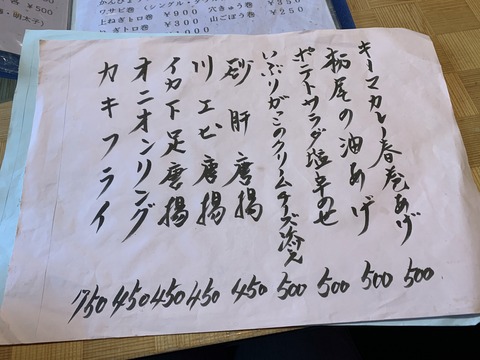 ・明太子)
¥500
ワサビ巻 ¥900
とろトロ巻 ¥300
穴きゅう巻 ¥350
山ごぼう巻 ¥250
キーマカレー春巻あげ 500
栃尾の油あげ 500
ポテトサラダ塩辛のせ 500
いぶりがっこのクリームチーズ添え 500
砂肝唐揚 450
川エビ唐揚 450
イカ下足唐揚 450
オニオンリング 450
カキフライ 750